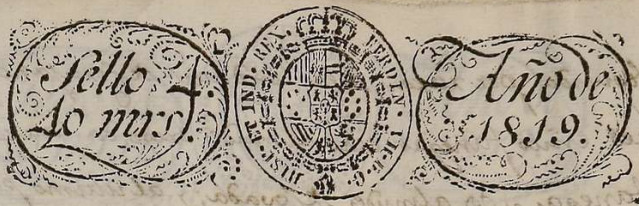 Sello 4.
40 mrs.
FERDIN. VII. D. G. HISP. ET IND. REX.
Año de
1819.